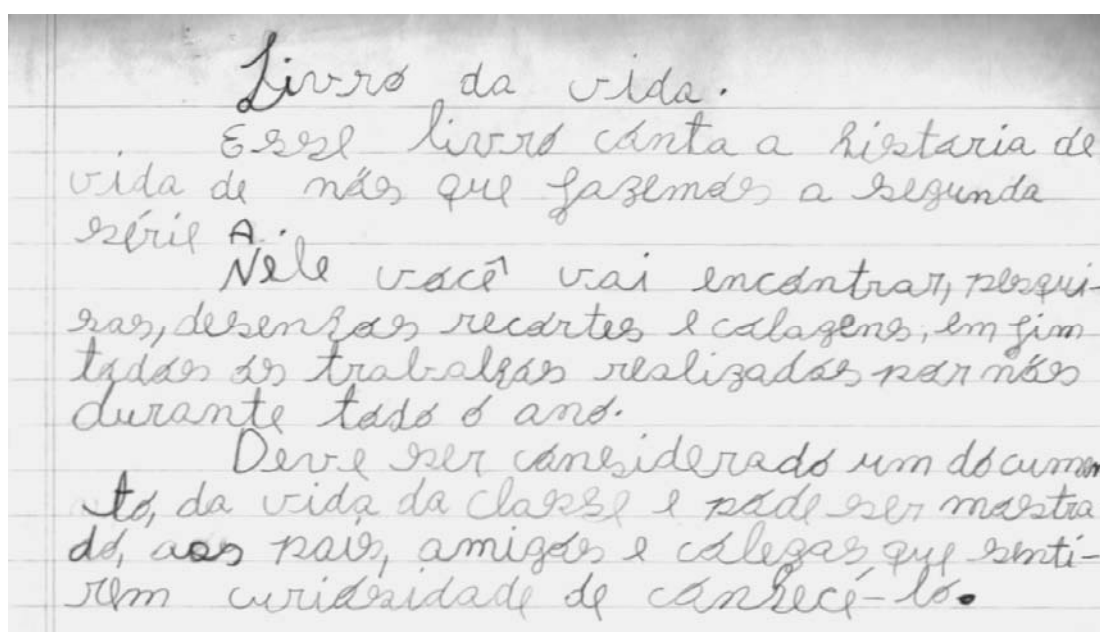 Livro da vida.
Esse livro conta a historia de
vida de nós que fazemos a segunda
série A.
Nele você vai encontrar, pesqui-
sas, desenhos recortes e colagens, em fim
todos os trabalhos realizados por nós
durante todo o ano.
Deve ser considerado um documen
to, da vida da classe e pode ser mostra
do, aos pais, amigos e colegas, que senti-
rem curiosidade de conhecê-lo.